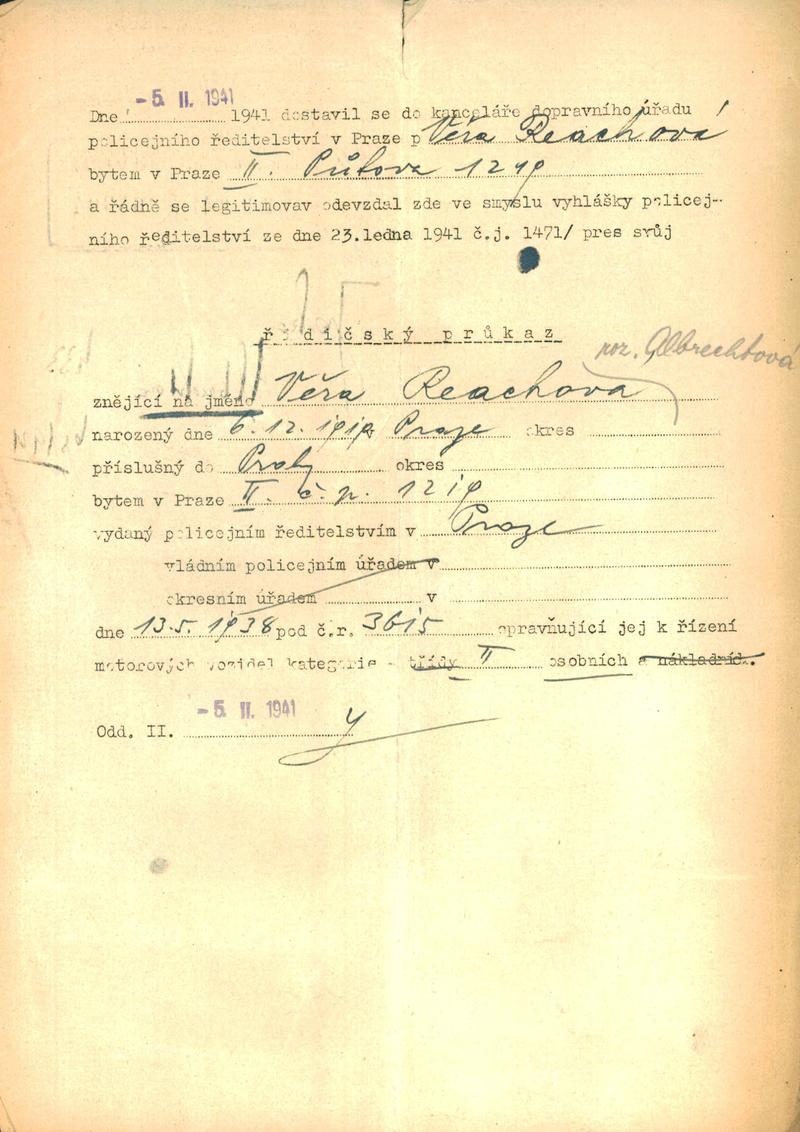 - 5. II. 1941
Dne 1941 dostavil se do kanceláře dopravního úřadu
policejního ředitelství v Praze p Věra Reachová
bytem v Praze II. Půtova 1219
a řádně se legitimovav odevzdal zde ve smyslu vyhlášky policej-
ního ředitelství ze dne 23.ledna 1941 č.j. 1471/ pres svůj
řidičský průkaz
roz. Albrechtová
znějící na jméno Věra Reachova
narozený dne 6. 12. 1919 Praze okres
příslušný do Prahy okres
bytem v Praze II. č. p. 1219
vydaný policejním ředitelstvím v Praze
vládním policejním úřadem v
okresním úřadem v
dne 13.5. 1938 pod č.r. 3615 opravňující jej k řízení
motorových vozidel kategorie - třídy II osobních a nákladníc.
- 5. II. 1941
Odd. II.